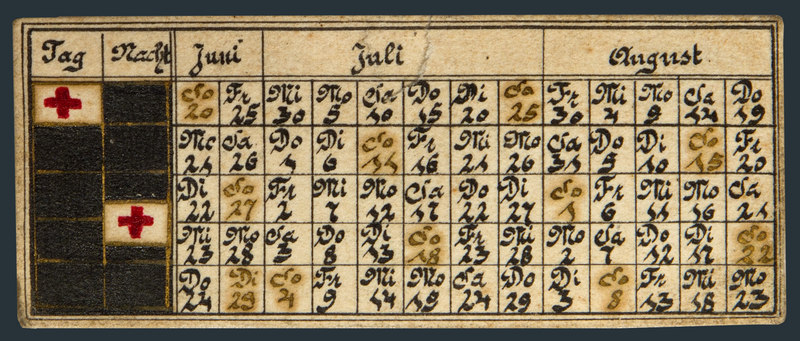 Tag Nacht Juni Juli August
So Fr Mi Mo Sa Do Di So Fr Mi Mo Sa Do
20 25 30 5 10 15 20 25 30 4 9 14 19
Mo Sa Do Di So Fr Mi Mo Sa Do Di So Fr
21 26 1 6 11 16 21 26 31 5 10 15 20
Di So Fr Mi Mo Sa Do Di So Fr Mi Mo Sa
22 27 2 7 12 17 22 27 1 6 11 16 21
Mi Mo Sa Do Di So Fr Mi Mo Sa Do Di So
23 28 3 8 13 18 23 28 2 7 12 17 22
Do Di So Fr Mi Mo Sa Do Di So Fr Mi Mo
24 29 4 9 14 19 24 29 3 8 13 18 23